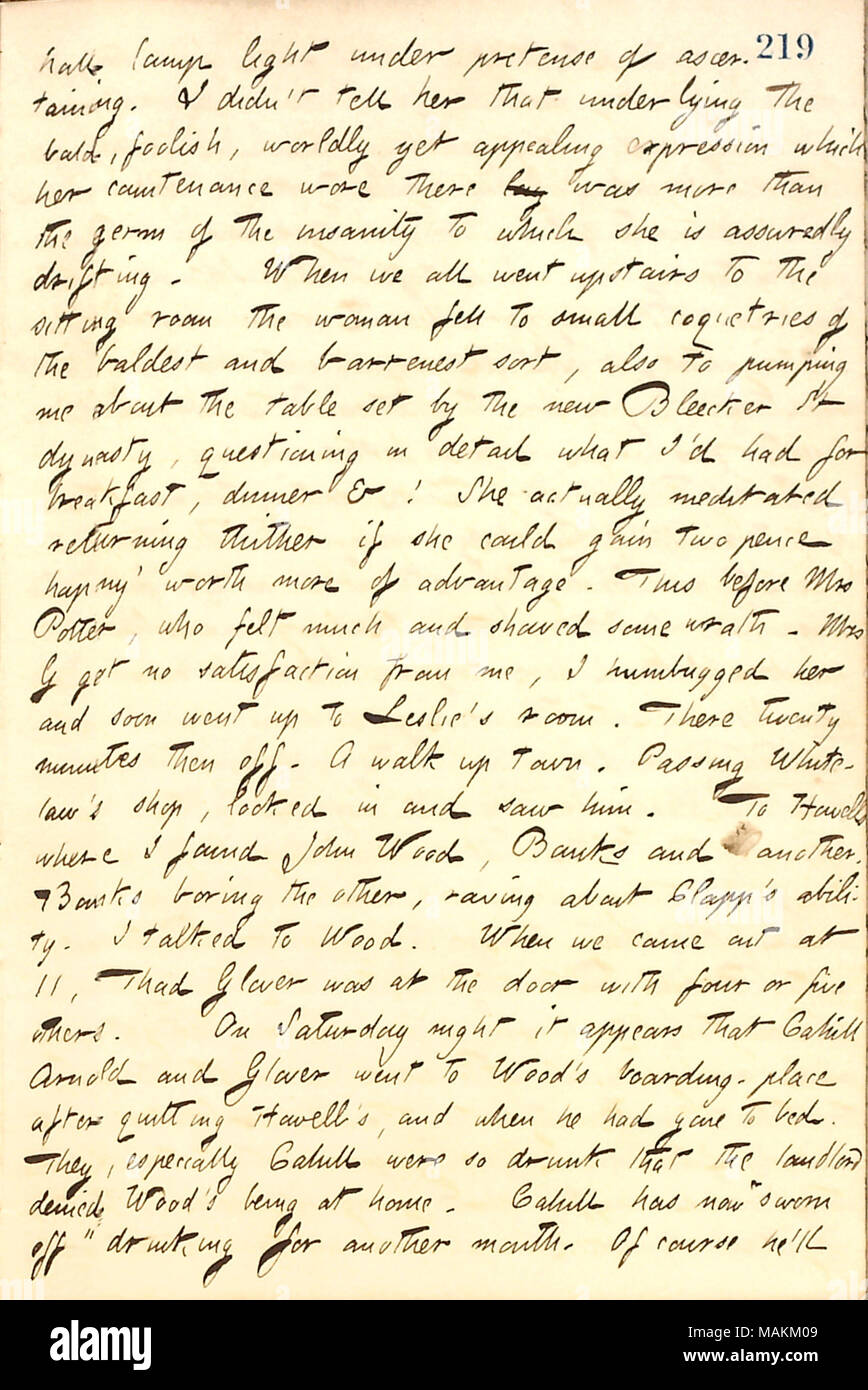 219
hall lamp light under pretense of ascer-
taining. I didn't tell her that underlying the
bald, foolish, worldly yet appealing expression which
her countenance wore there lay was more than
the germ of the insanity to which she is assuredly
drifting. When we all went upstairs to the
sitting room the woman fell to small coquetries of
the baldest and barrenest sort, also to pumping
me about the table set by the new Bleecker St
dynasty, questioning in detail what I'd had for
breakfast, dinner &! She actually meditated
returning thither if she could gain two pence
hapny' worth more of advantage. This before Mrs
Potter, who felt much and showed some wrath. Mrs
G got no satisfaction from me, I humbugged her
and soon went up to Leslie's room. There twenty
minutes then off. A walk up town. Passing White-
law's shop, looked in and saw him. To Howells
where I found John Wood, Banks and another.
Banks boring the other, raving about Clapp's abili-
ty. I talked to Wood. When we came out at
11, Thad Glover was at the door with four or five
others. On Saturday night it appears that Cahill
Arnold and Glover went to Wood's boarding-place
after quitting Howell's, and when he had gone to bed.
They, especially Cahill were so drunk that the landlord
denied Wood's being at home. Cahill has now "sworn
off" drinking for another month. Of course he'll
alamy
Image ID: MAKM09
www.alamy.com